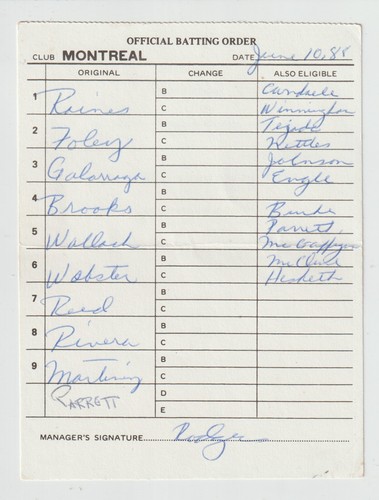 OFFICIAL BATTING ORDER
CLUB MONTREAL DATE June 10, 88
ORIGINAL CHANGE ALSO ELIGIBLE
1 Raines B C Candaele Winningham
2 Foley B C Tejada Nettles
3 Galarraga B C Johnson Engle
4 Brooks B C Burke
5 Wallach B C Parrett McGaffigan
6 Webster B C McClure Hesketh
7 Reed B C
8 Rivera B C
9 Martinez B C
PARRETT D E
MANAGER'S SIGNATURE Rodgers